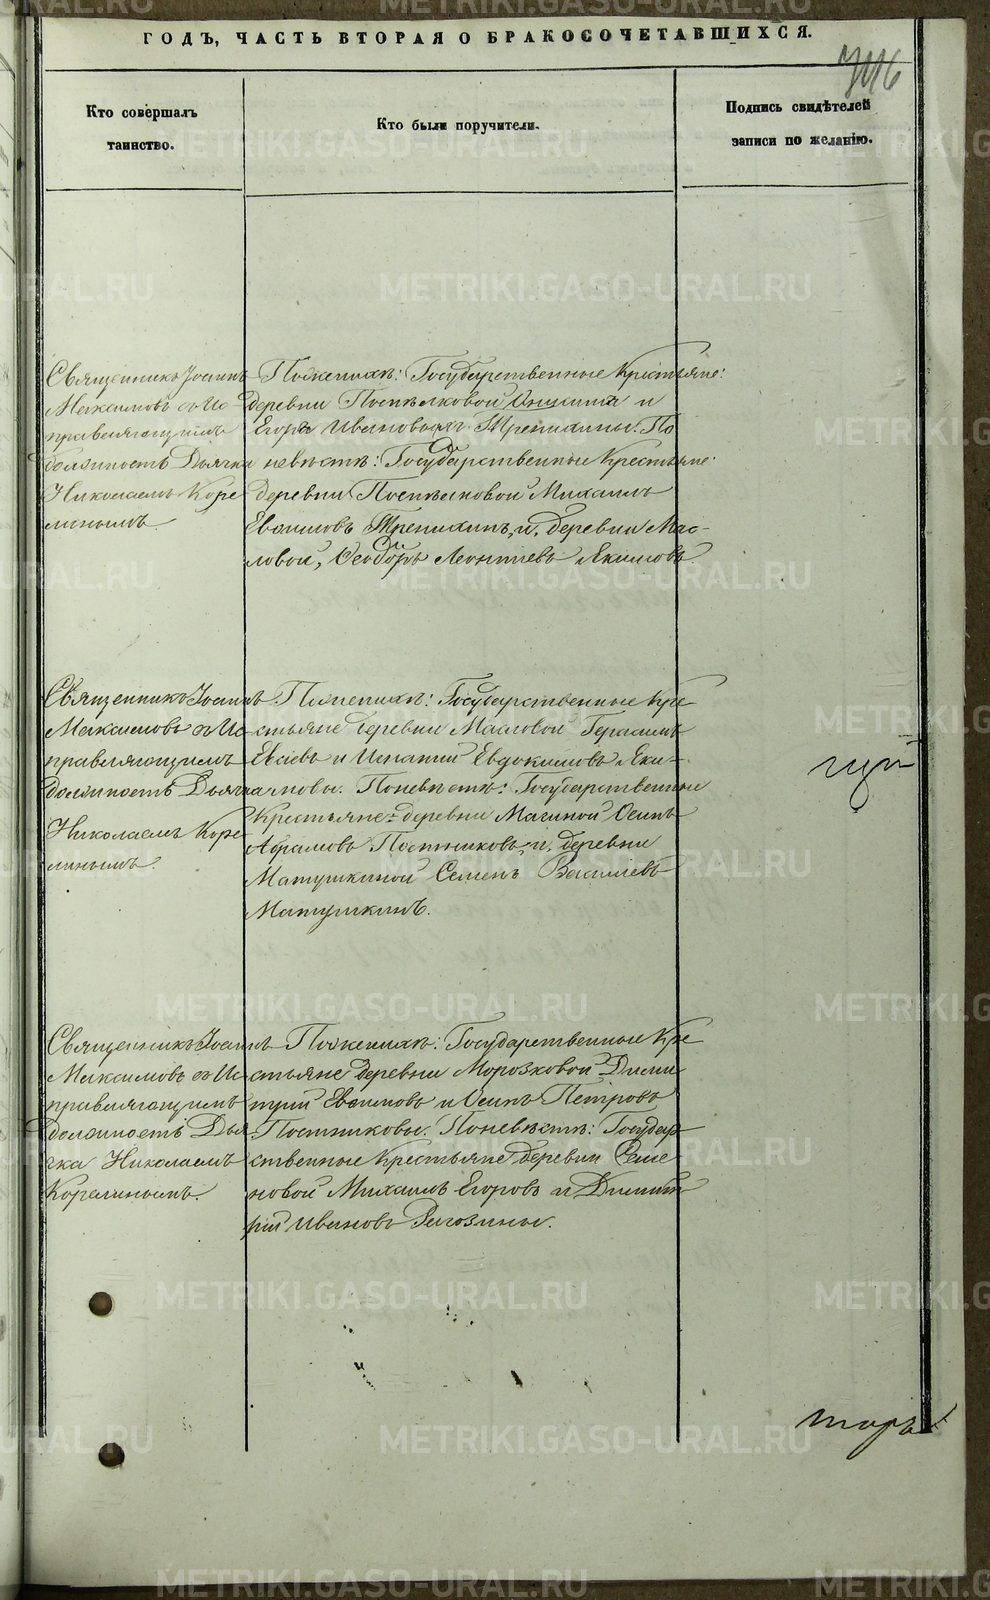 ГОДЪ, ЧАСТЬ ВТОРАЯ О БРАКОСОЧЕТАВШИХСЯ.
Кто совершалъ
таинство.
Кто были поручители.
Подпись свидѣтелей
записи по желанію.
Священникъ Іоаннъ
Максимовъ съ Ис-
правляющимъ
должность Дьячка
Николаемъ Коре-
линымъ.
По женихѣ: Государственные Крестьяне:
деревни Поспѣлковой Никита и
Егоръ Ивановы Трепихины. По
невѣстѣ: Государственные Крестьяне:
деревни Поспѣлковой Михаилъ
Евсимовъ Трепихинъ, и, деревни Мас-
ловой, Ѳеодоръ Леонтіевъ Якимовъ.
Священникъ Іоаннъ
Максимовъ съ Ис-
правляющимъ
должность Дьяч
Николаемъ Коре-
линымъ.
По женихѣ: Государственные Кре-
стьяне деревни Масловой Герасимъ
Евсіевъ и Игнатій Евдокимовъ Яки-
мовы. По невѣстѣ: Государственные
Крестьяне деревни Осипъ
Абрамовъ Постниковъ, и, деревни
Матушкиной Семенъ Васильевъ
Матушкинъ.
Священникъ Іоаннъ
Максимовъ съ Ис-
правляющимъ
должность Дья-
чка Николаемъ
Корелинымъ.
По женихѣ: Государственные Кре-
стьяне деревни Морозковой Дими-
трій Евсимовъ и Осипъ Петровъ
Постниковы. По невѣстѣ: Государ-
ственные Крестьяне деревни Семе-
новой Михаилъ Егоровъ и Димит-
рій Ивановъ Рагозины.
METRIKI.GASO-URAL.RU